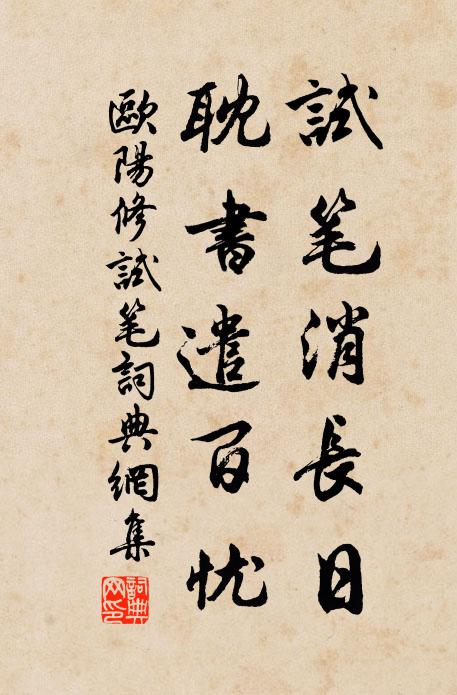 試笔消長日
耽書遣百忧
歐陽修試笔詞典網集
詞典網印